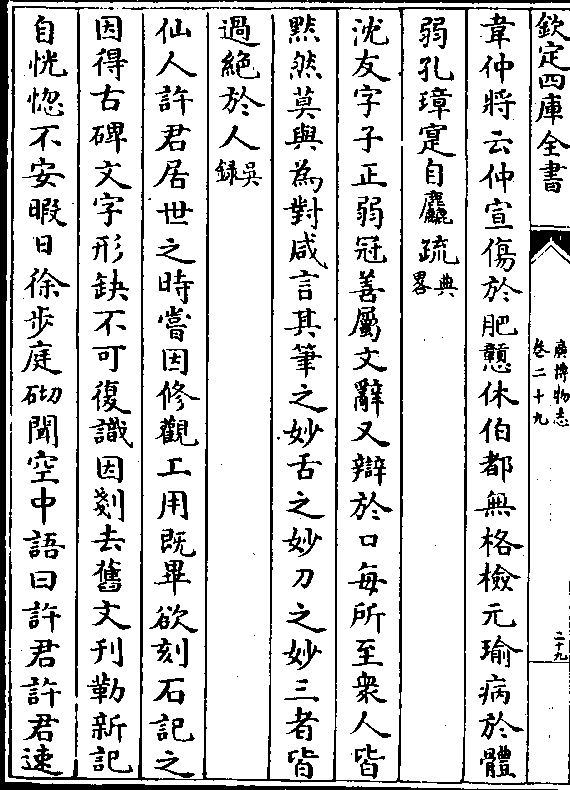 欽定四庫全書
廣博物志
卷二十九
二十九
韋仲將云仲宣傷於肥戇休伯都無格檢元瑜病於體
弱孔璋寔自麤疏典畧
沈友字子正弱冠善屬文辭又辯於口每所至衆人皆
黙然莫與為對咸言其筆之妙舌之妙刀之妙三者皆
過絶於人吳録
仙人許君居世之時嘗因修觀工用既畢欲刻石記之
因得古碑文字形缺不可復識因剗去舊文刊勒新記
自恍惚不安暇日徐步庭砌聞空中語曰許君許君速